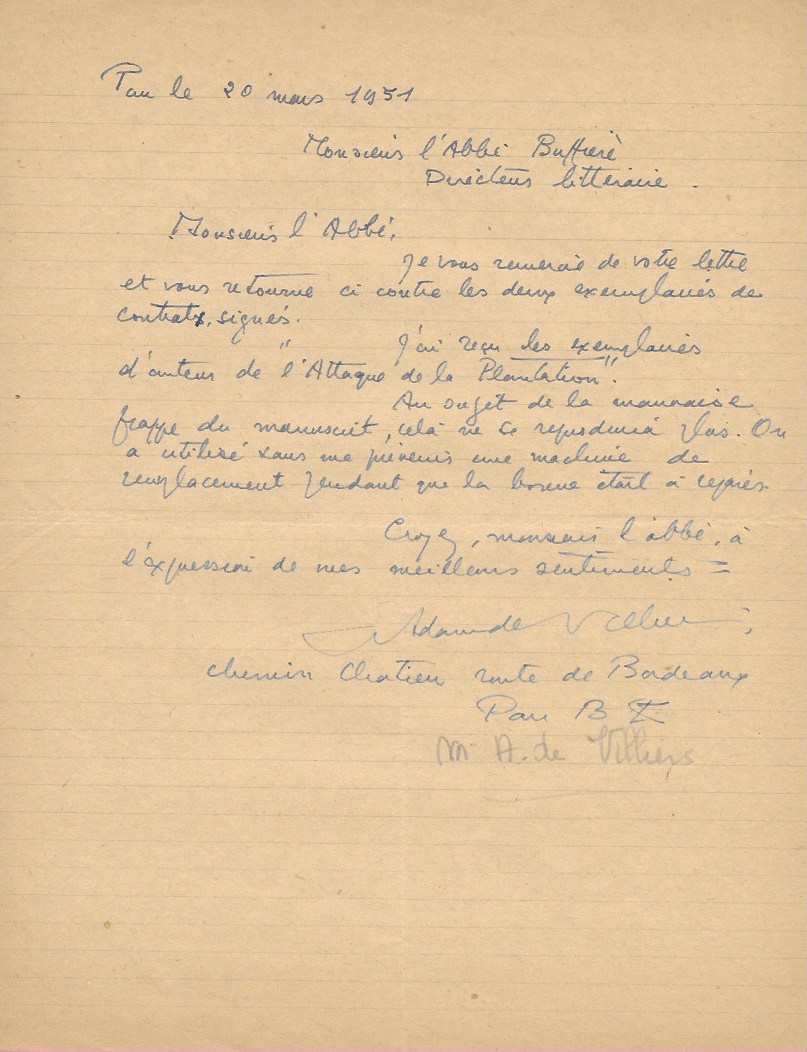 Pau le 20 mars 1951
Monsieur l'Abbé Buffière
Directeur littéraire.
Monsieur l'Abbé,
Je vous remercie de votre lettre
et vous retourne ci contre les deux exemplaires de
contrats, signés.
J'ai reçu les exemplaires
d'auteur de "l'Attaque de la Plantation".
Au sujet de la mauvaise
frappe du manuscrit, celà ne se reproduira plus. On
a utilisé sans me prévenir une machine de
remplacement pendant que la bonne était à réparer
Croyez, monsieur l'abbé, à
l'expression de mes meilleurs sentiments =
Adam de Villiers
chemin route de Bordeaux
Pau B
M. A. de Villiers